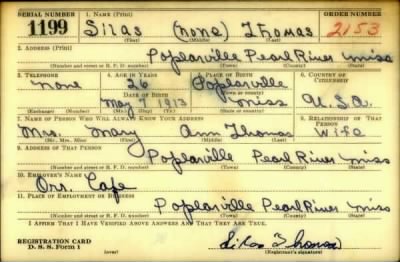 SERIAL NUMBER 1. NAME (Print) ORDER NUMBER
1199 Silas (none) Thomas 2153
(First) (Middle) (Last)
2. ADDRESS (Print)
Poplarville Pearl River Miss
(Number and street or R. F. D. number) (Town) (County) (State)
3. TELEPHONE 4. AGE IN YEARS 5. PLACE OF BIRTH 6. COUNTRY OF CITIZENSHIP
none 26 Poplarville
DATE OF BIRTH
May 1913 Miss U.S.A.
(Exchange) (Number) (Mo.) (Day) (Yr.) (State or country)
7. NAME OF PERSON WHO WILL ALWAYS KNOW YOUR ADDRESS 8. RELATIONSHIP OF THAT PERSON
Mrs. Mary Ann Thomas Wife
(Mr., Mrs., Miss) (First) (Middle) (Last)
9. ADDRESS OF THAT PERSON
Poplarville Pearl River Miss
(Number and street or R. F. D. number) (Town) (County) (State)
10. EMPLOYER'S NAME
Orr. Cafe
11. PLACE OF EMPLOYMENT OR BUSINESS
Poplarville Pearl River Miss
(Number and street or R. F. D. number) (Town) (County) (State)
I AFFIRM THAT I HAVE VERIFIED ABOVE ANSWERS AND THAT THEY ARE TRUE.
REGISTRATION CARD
D. S. S. Form 1 (over) Silas Thomas
(Registrant's signature)